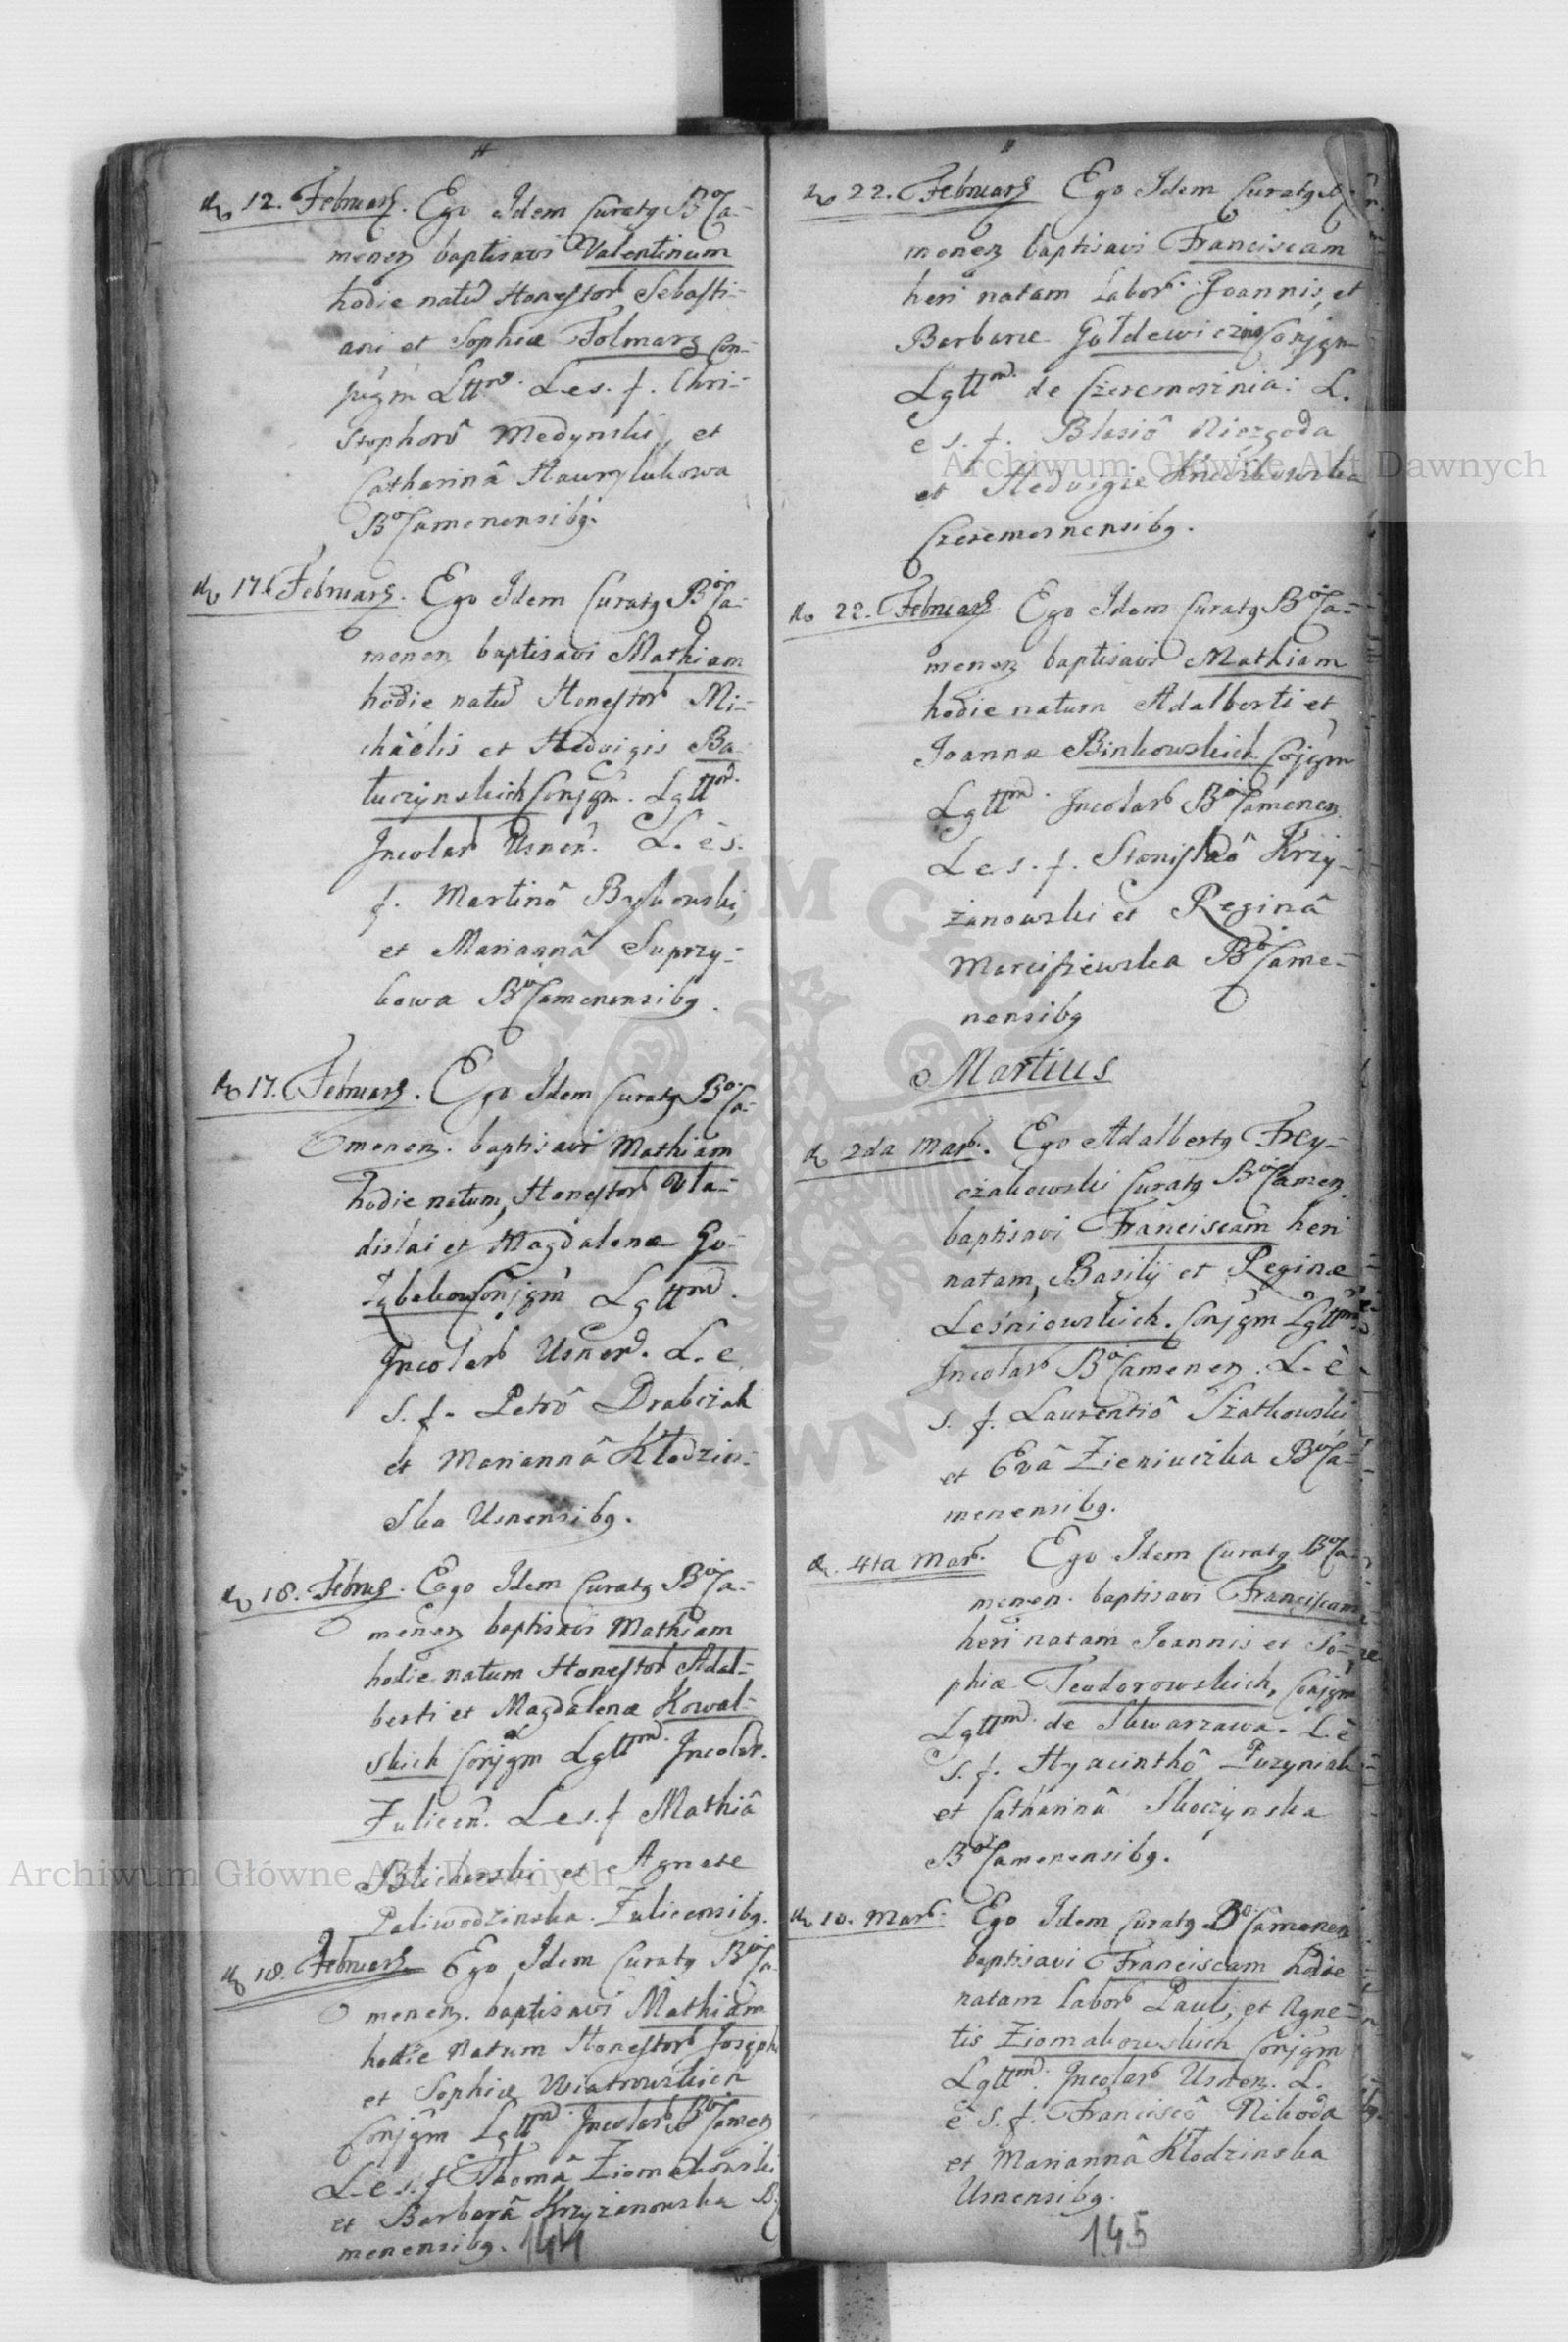 12. Februarÿ. Ego Idem Curatg BoCa-
menen baptisavi Valentinum
hodie natũ Honestor Sebasti-
ani et Sophiæ Folmarz Con-
jugm Lttm. L e s. f. Chri-
stophorô Medynski, et
Catharinâ Hawrylukowa
BoCamenensibg.
17. Februarÿ. Ego Idem Curatg BoCa-
menen baptisavi Mathiam
hodie natũ Honestor Mi-
chaelis et Hedvigis Ba
tuczynskich Conjgm. Lgttm.
Incolar Usnen. L. è s.
f. Martinô Bykowski,
et Mariannâ Suprzy-
kowa BoCamenensibg.
17. Februarÿ. Ego Idem Curatg BoCa-
menen. baptisavi Mathiam
hodie natum, Honestor Vla-
dislai et Magdalenæ Go-
Conjgm Lgttm.
Incolar Usnen. L. e
s. f. Petrô Drabczak
et Mariannâ Kłodzin-
ska Usnensibg.
18. Februÿ. Ego Idem Curatg BoCa-
menen baptisavi Mathiam
hodie natum Honestor Adal-
berti et Magdalenæ Kowal-
skich Conjgm Lgttm. Incolar.
Zulicen. L e s. f Mathiâ
Blicharski et Agnete
Paliwodzinska. Zulicensibg.
18. Februarÿ Ego Idem Curatg BoCa
menen. baptisavi Mathiam
hodie natum Honestor Joseph
et Sophiæ Wiatrowskich
Conjgm Lgttm. Incolar BoCamen
L. e s. f Thomâ Ziomakowski
et Barbarâ Krzyżanowska B
menensibg. 144
22. Februarÿ Ego Idem Curatg
menen baptisavi Franciscam
heri natam Labor. Joannis, et
Barbaræ Conjgm
Lgttm. de Czeremosznia. L.
e s. f. Blasiô Niezgoda
et Hedvigie
Czeremosnensibg.
22. Februarÿ Ego Idem Curatg BoCa-
menen baptisavi Mathiam
hodie natum Adalberti et
Joannæ Binkowskich Cojgm
Lgttm. Incolar BoCamenen
L e s. f. Stanislaô Krzy-
żanowski et Reginâ
Marciszewska BoCame-
nensibg
Martius
2da Mar. Ego Adalbertg Frey-
czakowski Curatg BoCamen
baptisavi Franciscam heri
natam, Basilÿ et Reginæ
Leśniowskich. Conjgm Lgttm
Incolar BoCamenen. L. è
s. f. Laurentiô Szatkowski
et Evâ Zieniuczka BoCa-
menensibg.
4ta Mar. Ego Idem Curatg BoCa-
menen. baptisavi Franciscam
heri natam Joannis et So-
phiæ Teodorowskich, Conjgm
Lgttm. de Skwarzawa. L. è
s. f. Hyacinthô Puzyniak
et Catharinâ Skoczynska
BoCamenensibg.
10. Mar. Ego Idem Curatg BoCamenen
baptisavi Franciscam hodie
natam labor Pauli, et Agne-
tis Ziomakowskich Conjgm
Lgttm. Incolar Usnen. L.
è s. f. Franciscô Nikoda
et Mariannâ Kłodzinska
Usnensibg.
145
Archiwum Główne Akt Dawnych
Archiwum Główne Akt Dawnych